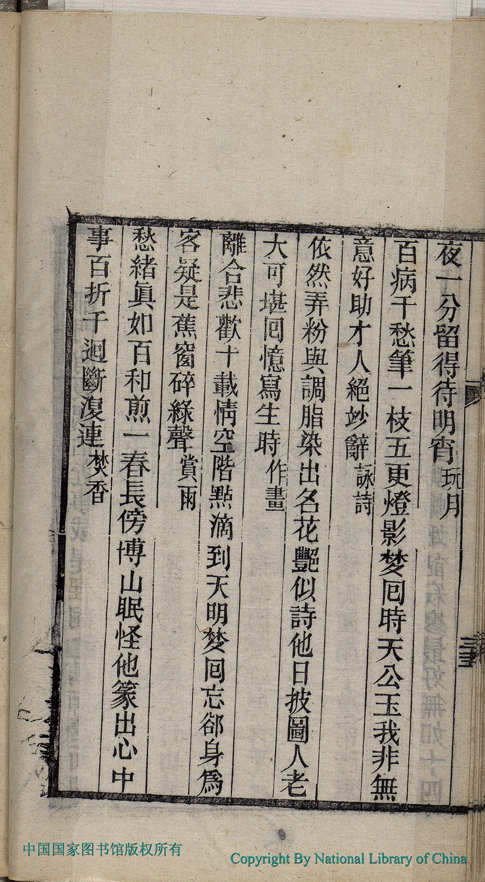 夜一分留得待明宵玩月
百病千愁筆一枝五更燈影夢回時天公玉我非無
意好助才人絕妙辭詠詩
依然弄粉與調脂染出名花豔似詩他日披圖人老
大可堪回憶寫生時作畫
離合悲歡十載情空階點滴到天明夢回忘卻身為
客疑是蕉窗碎綠聲賞雨
愁緒真如百和煎一春長傍博山眠怪他篆出心中
事百折千迴斷復連焚香
中国国家图书馆版权所有
Copyright By National Library of China